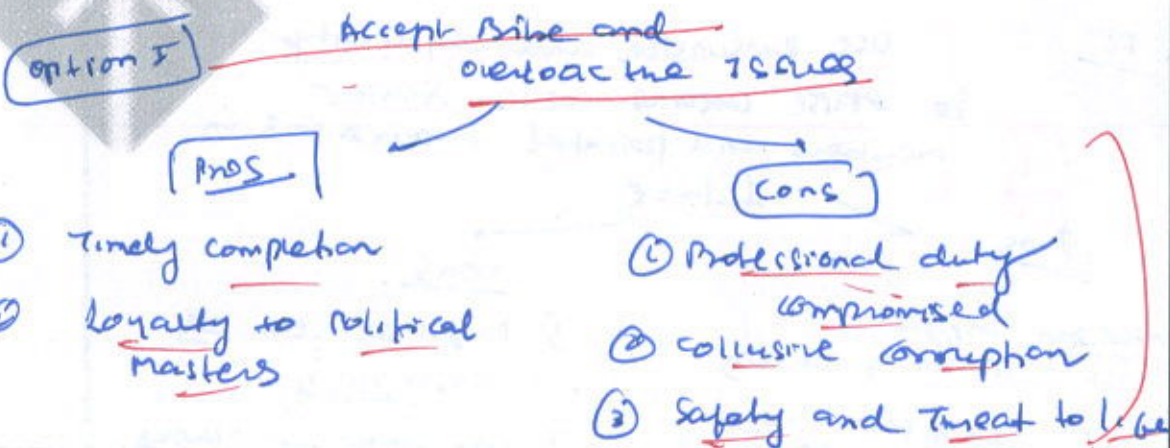 Option I
Accept Bribe and
overlook the Issues
Pros
Cons
① Timely completion
② Loyalty to Political
Masters
① Professional duty
compromised
② Collusive corruption
③ Safety and Threat to life